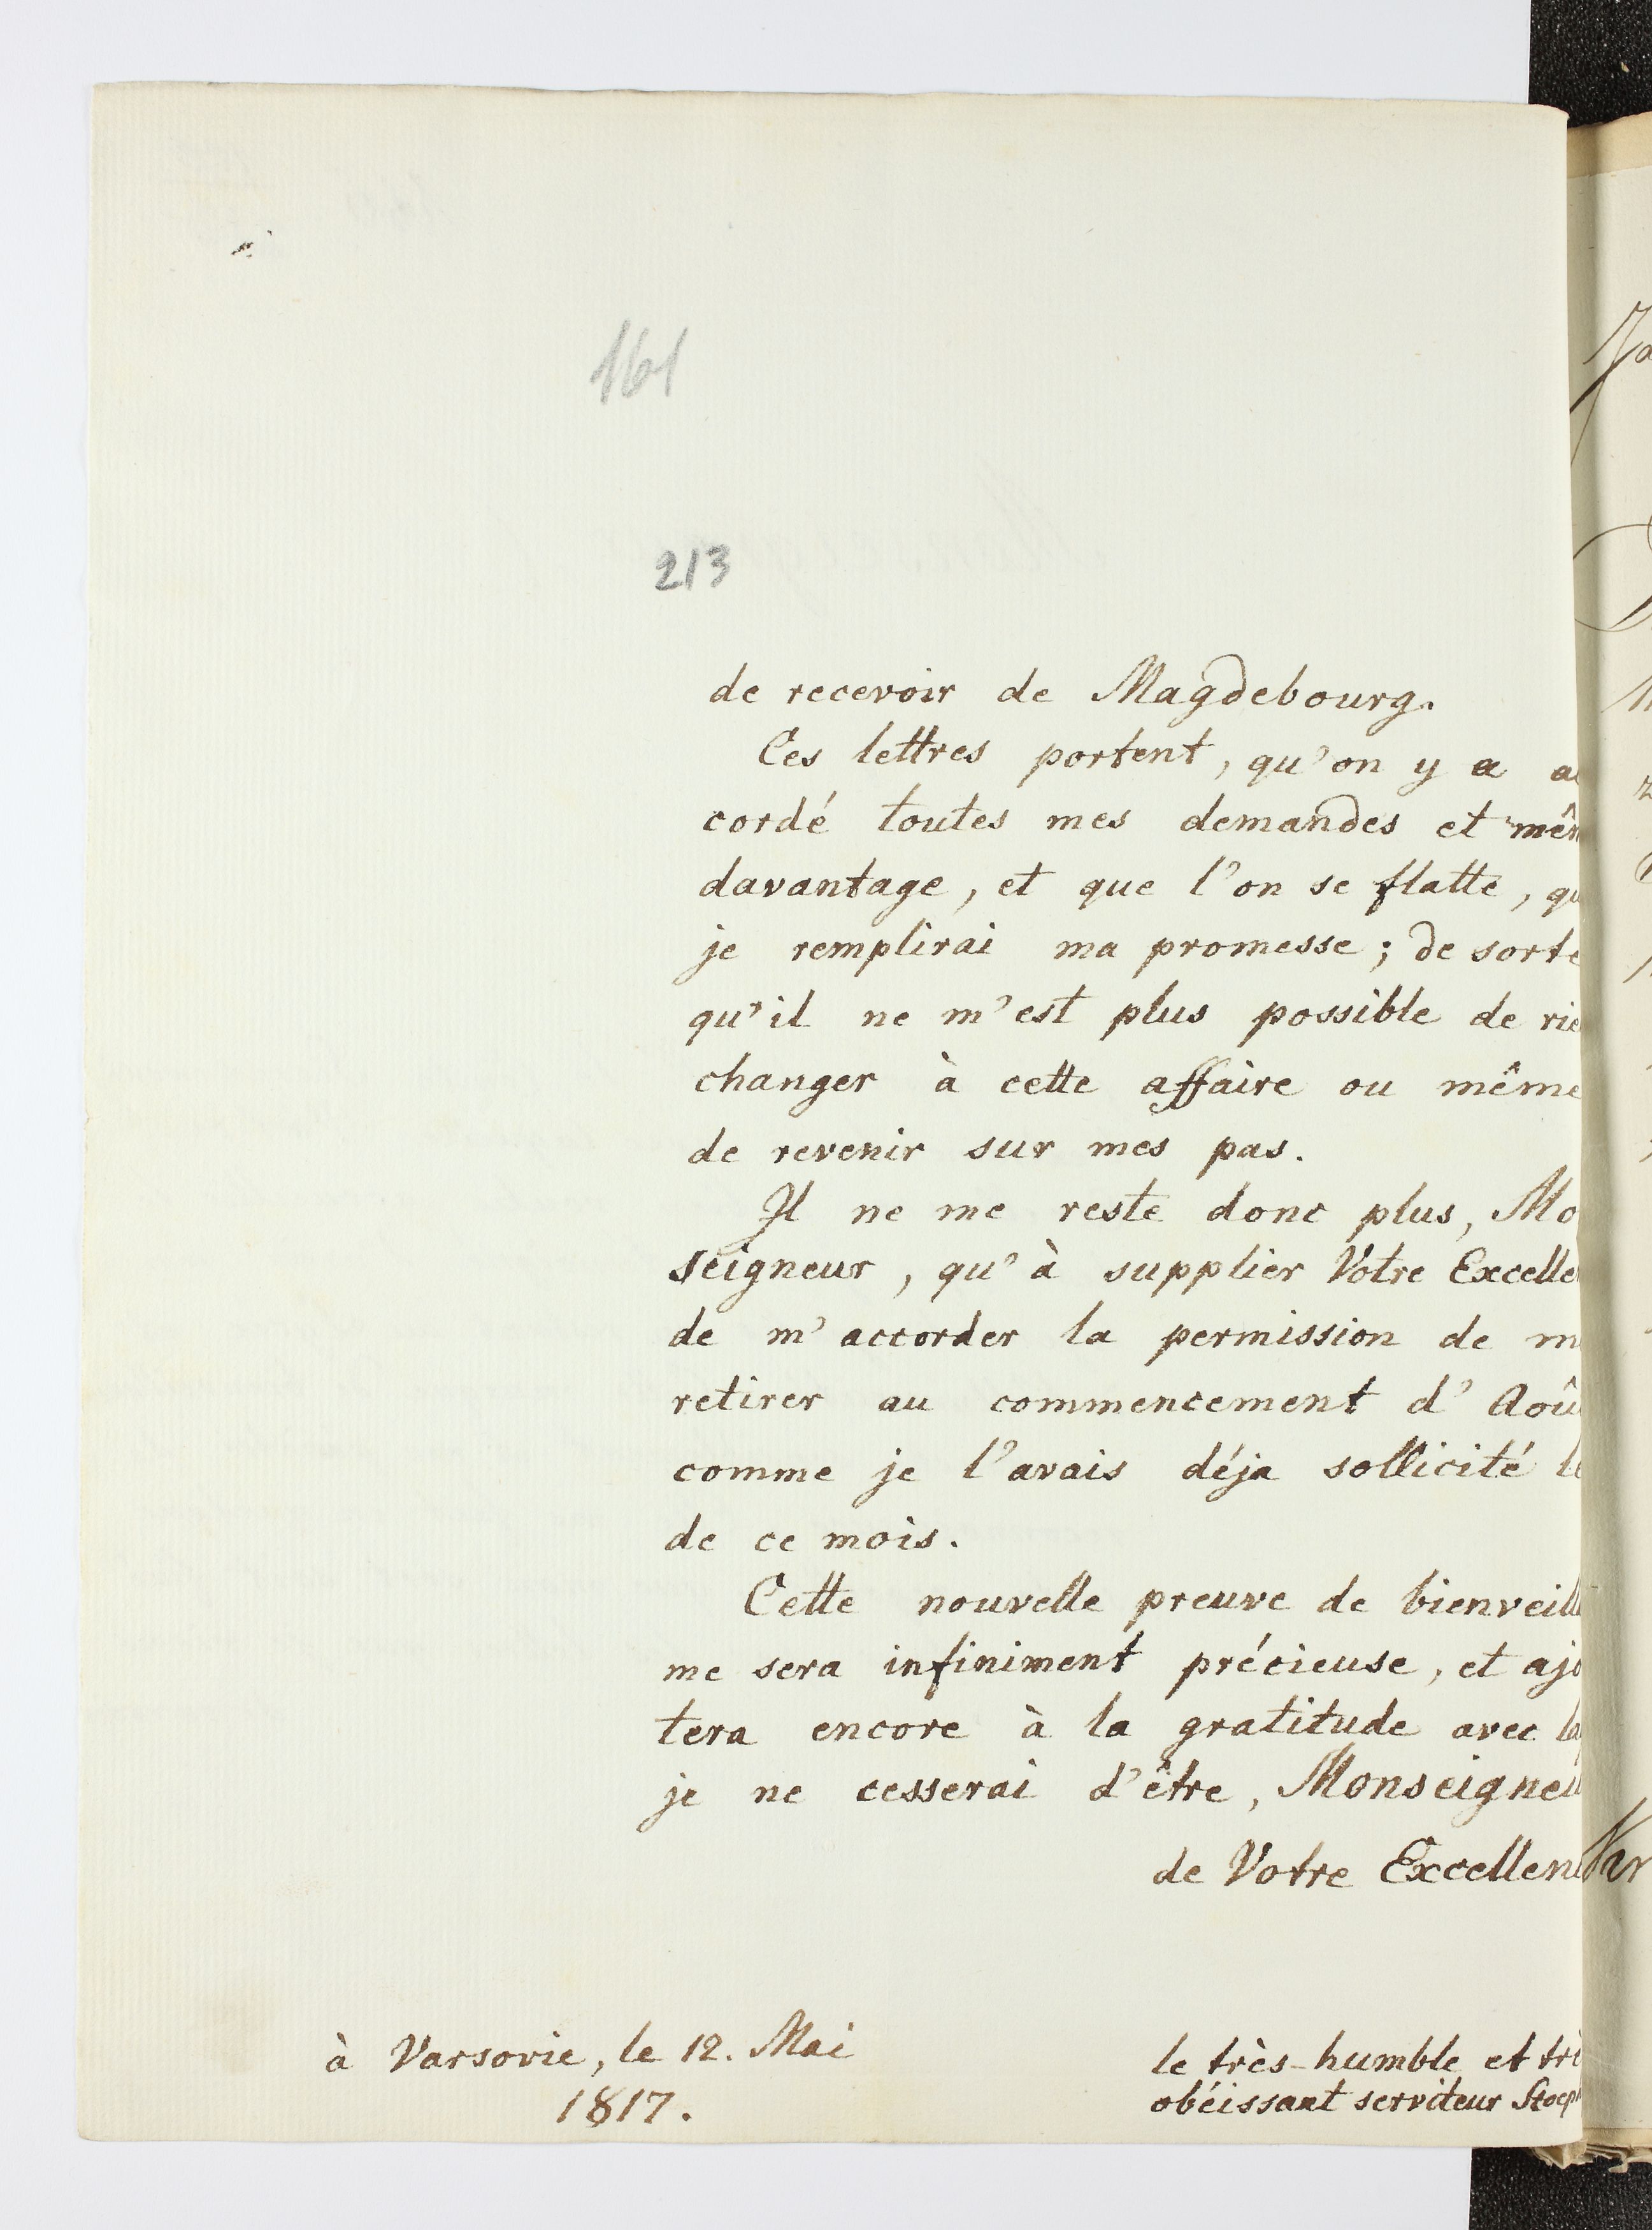 161
213
de recevoir de Magdebourg.
Ces lettres portent, qu'on y a
cordé toutes mes demandes et
davantage, et que l'on se flatte,
je remplirai ma promesse; de sorte
qu'il ne m'est plus possible de
changer à cette affaire ou même
de revenir sur mes pas.
Il ne me reste donc plus, Mo
seigneur, qu'à supplier Votre Excelle
de m'accorder la permission de
retirer au commencement d'Aoû
comme je l'avais déja sollicité
de ce mois.
Cette nouvelle preuve de bienveill
me sera infiniment précieuse, et ajo
tera encore à la gratitude avec
je ne cesserai d'être, Monseigneu
de Votre Excellen
à Varsovie, le 12. Mai
1817.
le très-humble et trè
obéissant serviteur Stoep